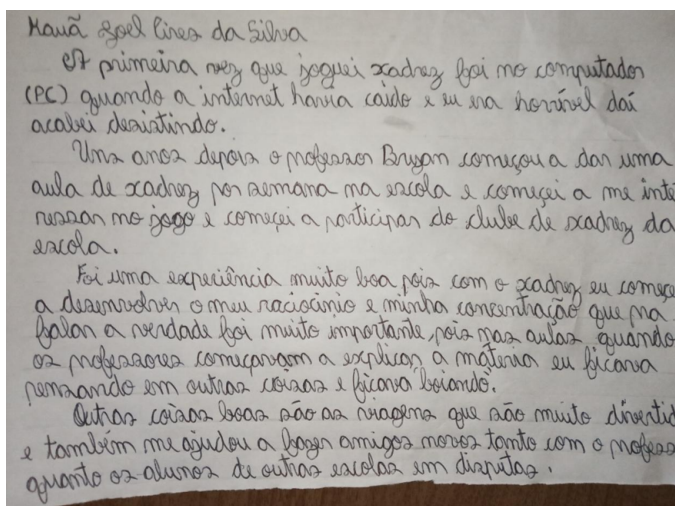 Kauã Joel Pires da Silva
A primeira vez que joguei xadrez foi no computador
(PC) quando a internet havia caido e eu era horrível daí
acabei desistindo.
Uns anos depois o professor Bryan começou a dar uma
aula de xadrez por semana na escola e começei a me inte
ressar no jogo e começei a participar do clube de xadrez da
escola.
Foi uma experiência muito boa pois com o xadrez eu começe
a desenvolver o meu raciocínio e minha concentração que pra
falar a verdade foi muito importante, pois nas aulas quando
os professores começavam a explicar a máteria eu ficava
pensando em outras coisas e ficava "boiando".
Outras coisas boas são as viagens que são muito divertid
e também me ajudou a fazer amigos novos tanto com o profess
quanto os alunos de outras escolas em disputas.